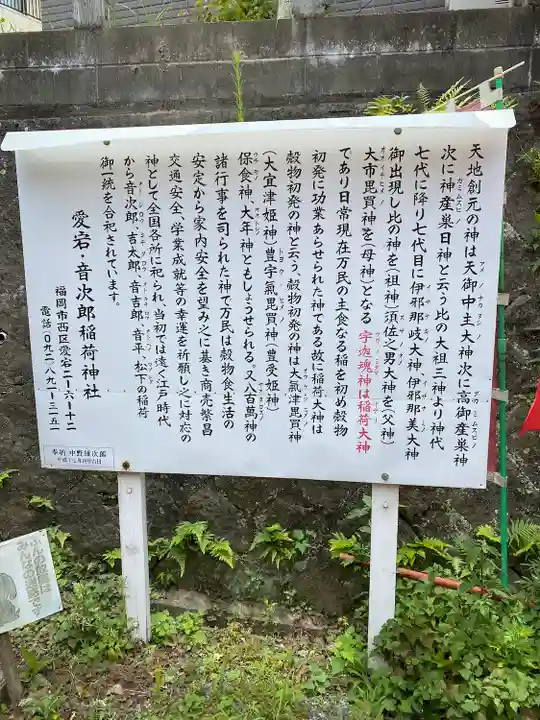 天地創元の神は天御中主大神次に高御産巣神
次に神産巣日神と云う比の大祖三神より神代
七代に降り七代目に伊邪那岐大神、伊邪那美大神
御出現し比の神を(祖神)須佐之男大神を(父神)
大市毘買神を(母神)となる 宇迦魂神は稲荷大神
であり日常現在万民の主食なる稲を初め穀物
初発に功業あらせられた神である故に稲荷大神は
穀物初発の神と云う、穀物初発の神は大氣津毘買神
(大宜津姫神)豊宇氣毘買神(豊受姫神)
保食神、大年神ともしょうせられる。又八百萬神の
諸行事を司られた神で万民は穀物食生活の
安定から家内安全を望み之に基き商売繁昌
交通安全、学業成就等の幸運を祈願し之に対応の
神として全国各所に祀られ、当初では遠く江戸時代
から音次郎、吉太郎、音吉郎、音平、松下の稲荷
御一統を合祀されています。
愛岩・音次郎稲荷神社
福岡市西区愛岩二-六-十二
電話(〇九二)八九一-三一五一
奉納 中野緑次郎
ふんの始末は
みんなの迷惑です